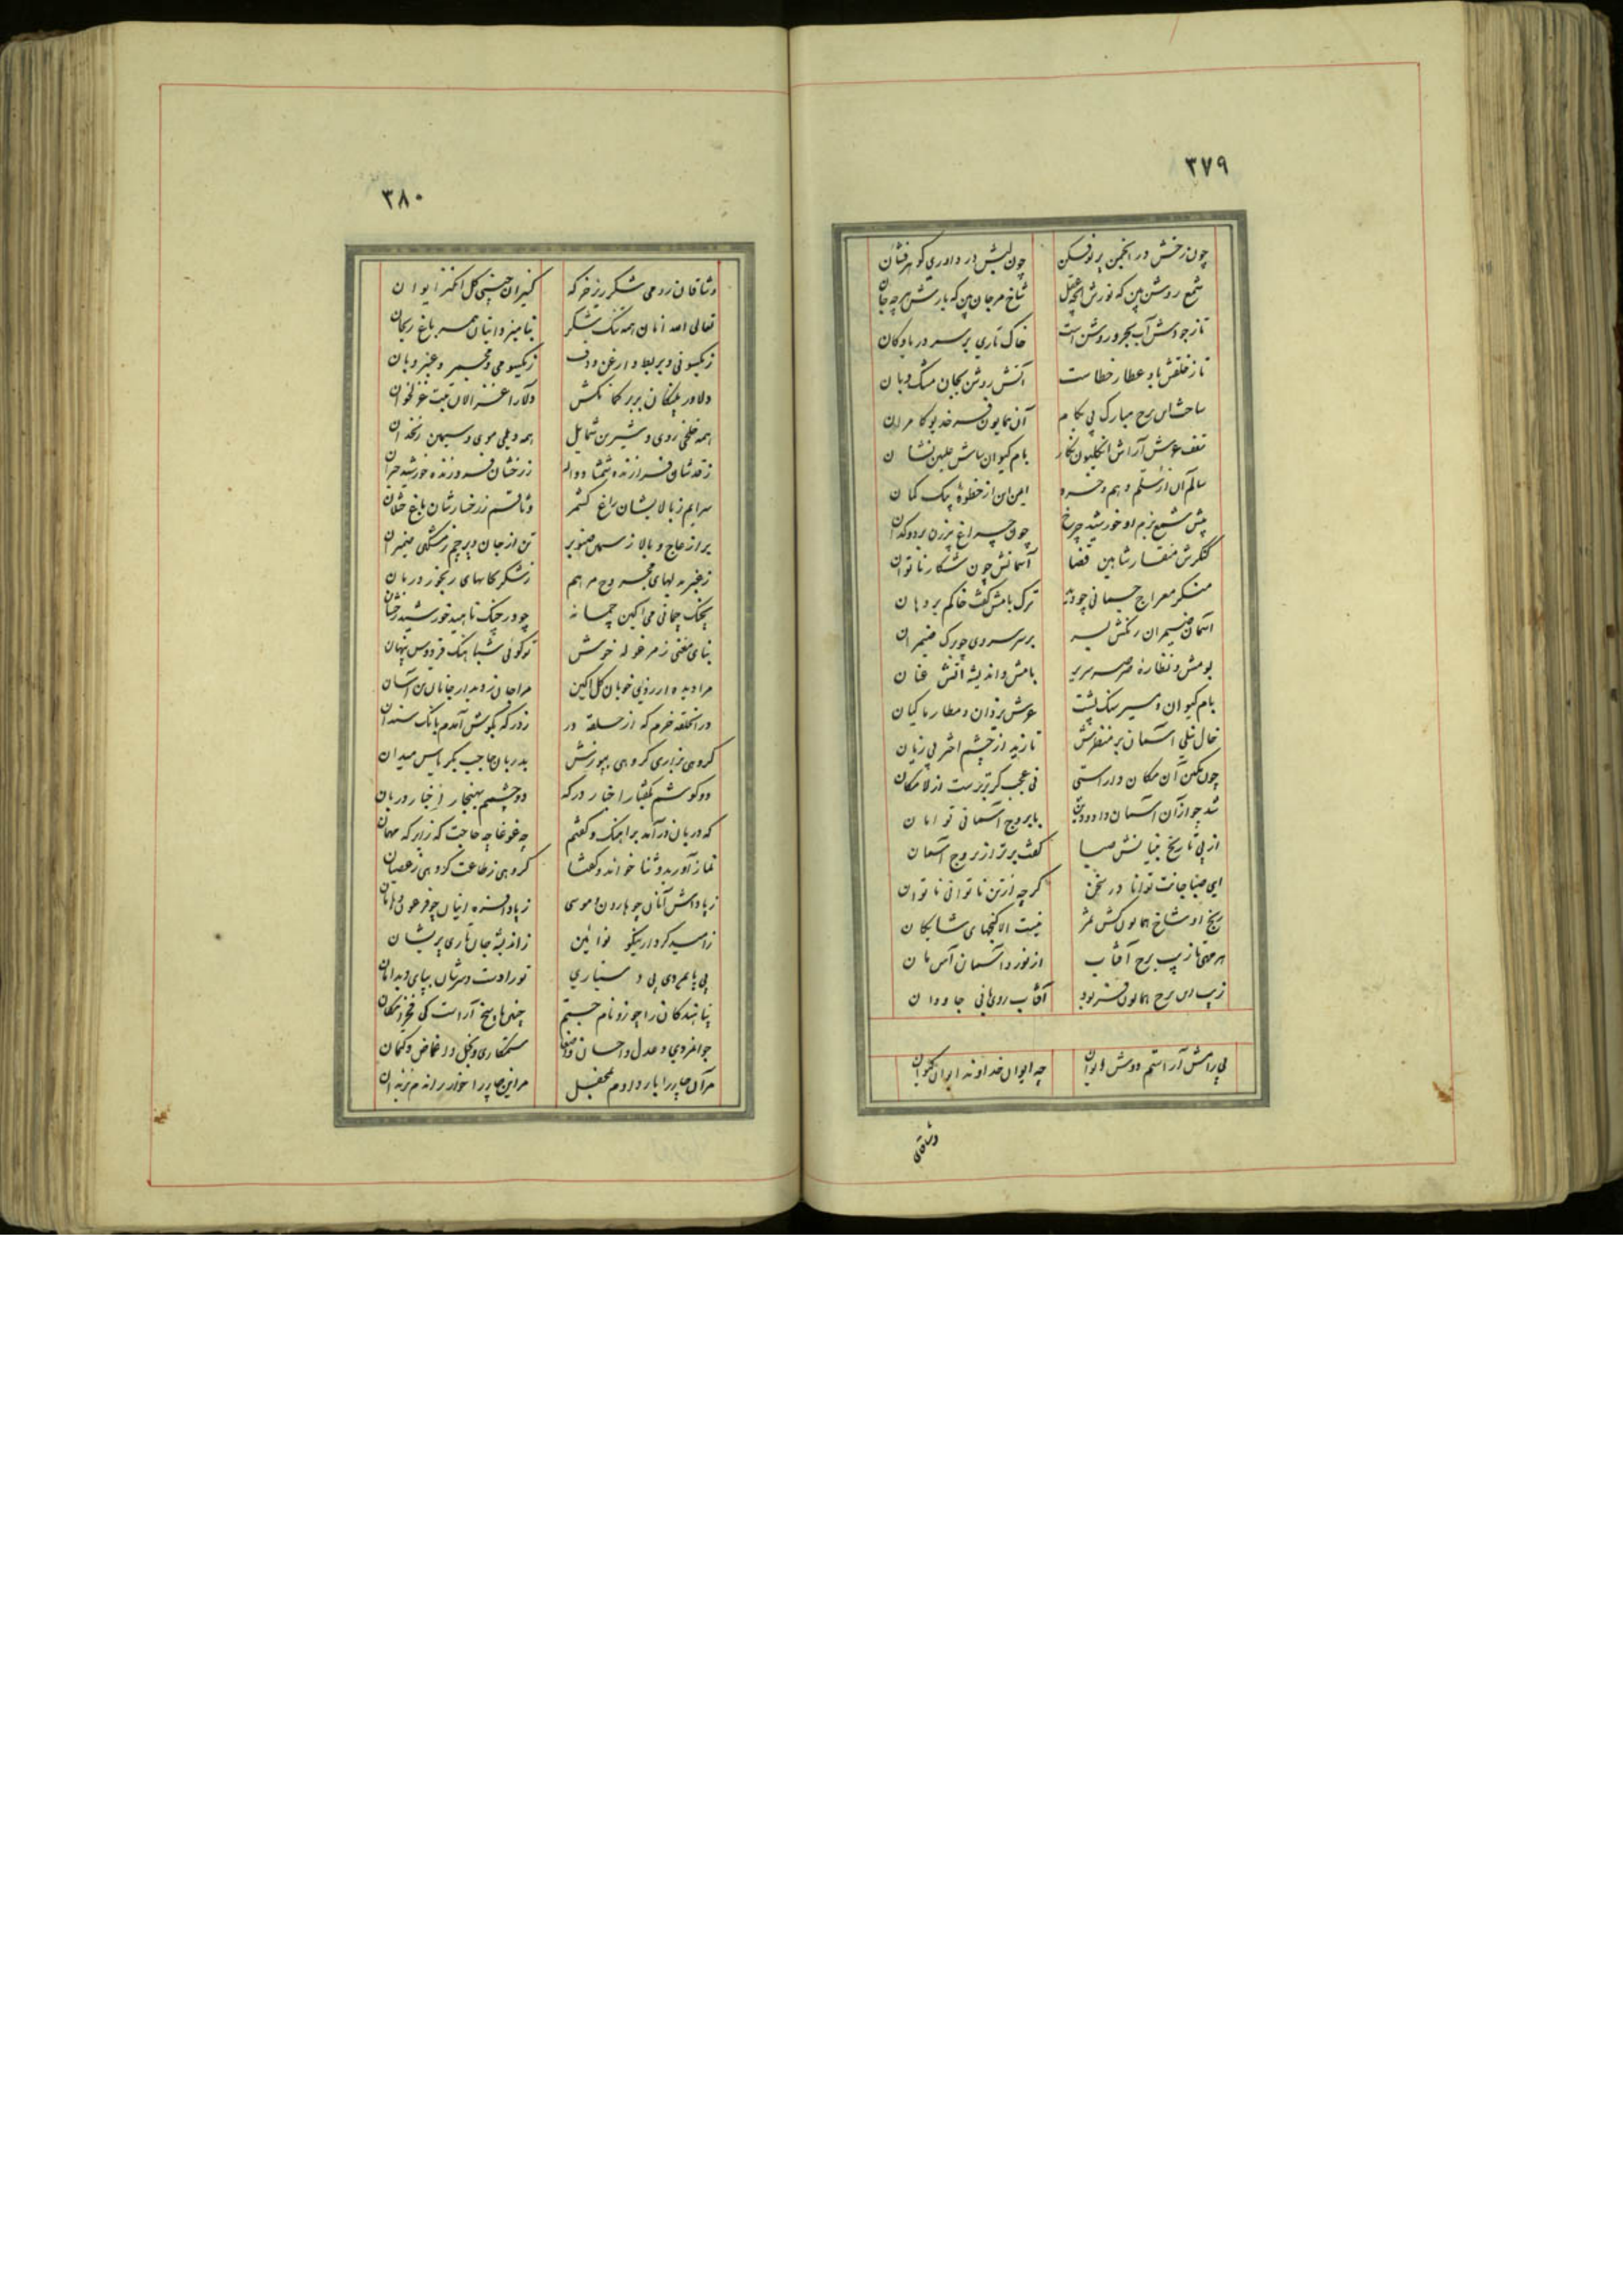 ۳۷۹
چون زخش در انجمن پرتوفکن چون لبش در داوری گوهرفشان
شمع روشن بین که نورش عقل شاخ مرجان بین که بارش هر چه جان
تا ز جودش آب بحر و روشن است خاک تاری بر سر دریا و کان
تا ز خلقش باد عطار خطاست آتش روشن بجان مشک و بان
ساخت این برج مبارک پی بکام آن همایون فر خدیو کامران
سقف عرش آراش انگلیون نگار بام کیوان ساش علیین نشان
سالم آن از سلم و هم ایمن این از خطوهٔ پیک کمان
پیش شمع بزم او خورشید چرخ چون چراغ پیرزن بر دودکدان
کنگرش منقار شاهین قضا آسمانش چون شکار ناتوان
منکر معراج جسمانی چو دید ترک بامش گفت خاکم بر دهان
آسمان ضیمران رنگش بسر بر سر سروی چو برگ ضیمران
بومش و نظاره صرصر سریر بامش و اندیشه آتش عنان
بام کیوان و مسیر سنگ پشت عرش یزدان و مطار ماکیان
خال نیلی آسمان بر منظرش تا زید از چشم اختر بی زیان
چون مکین آن مکان داراستی نی عجب گر برترست از لامکان
شد چو از آن آسمان با بروج آسمانی توامان
از پی تاریخ بنیانش صبا گفت برتر از بروج آسمان
ای صبا جانت توانا در سخن گرچه از تن ناتوانی ناتوان
رنج او شاخ همایون کش ثمر نیست الا گنجهای شایگان
هر مهی تا زیب برج آفتاب از نورد آسمان آسمان
زیب این برج همایون فر بود آفتاب روی خانی جاودان
پی رامش آراستم دوش ایوان چه ایوان خداوند ایوان کیوان
وثاقان
۳۸۰
وثاقان رومی شکرریز خرگه کنیزان چینی گل انگیز ایوان
تعالی الله آنان همه تنگ شکر بنامیزد اینان همه باغ ریحان
ز یکسو نی و بربط و ارغن و دف ز یکسو می و مجمر و عنبر و بان
دلاور پلنگان بربر کمانکش دلارا غزالان تبت غزلخوان
همه خلخی روی و شیرین شمایل همه دیلمی موی و سیمین زنخدان
ز قدشان فرازنده شمشاد و لاله ز رخشان فروزنده خورشید
سرایم ز بالایشان راغ کشمر وثاقم ز رخسارشان باغ
بر از عاج و بالا ز سیمین صنوبر تن از جان و پرچم ز مشکین ضیمران
ز عنبر بدلهای مجروح مرهم ز شکر بکامهای رنجور درمان
بچنگ چمانی می آگین چمانه چو در چنگ ناهید خورشید رخشان
بنای مغنی ز مرغوله خوش تو گوئی شباهنگ فردوس پنهان
مرا دیده از روی خوبان گل آگین مرا جان ز دیدار جانان تن آسان
در آن حلقه خرم که از حلقه در ز درگه بگوش آمدم بانگ سندان
گروهی بزاری گروهی بپوزش بدربان حاجب بگریاس میدان
دو گوشم بگفتار اخیار درگه دو چشمم بهنجار اخبار دربان
که دربان درآمد برآهنگ و گفتم چه غوغا چه حاجت که زایر که مهمان
نماز آورید و ثنا خواند و گفتا گروهی ز طاعت گروهی ز عصیان
ز پاداش آنان چو هارون و موسی ز پادافره اینان چو فرعون و هامان
ز امید کردار نیکو نوائین ز اندیشه جان تاری پریشان
پی پایمردی پی دستیاری تو رادست و سرشان بپای و بدامان
نیایندگان را چو زو نام جستم چنین پاسخ آراست کی فخر امکان
جوانمردی و عدل و احسان ستمکاری و بخل و اغماض و کتمان
مر آن چاپر را بار دادم بمحفل مر این چاپر را خوار راندم بزندان